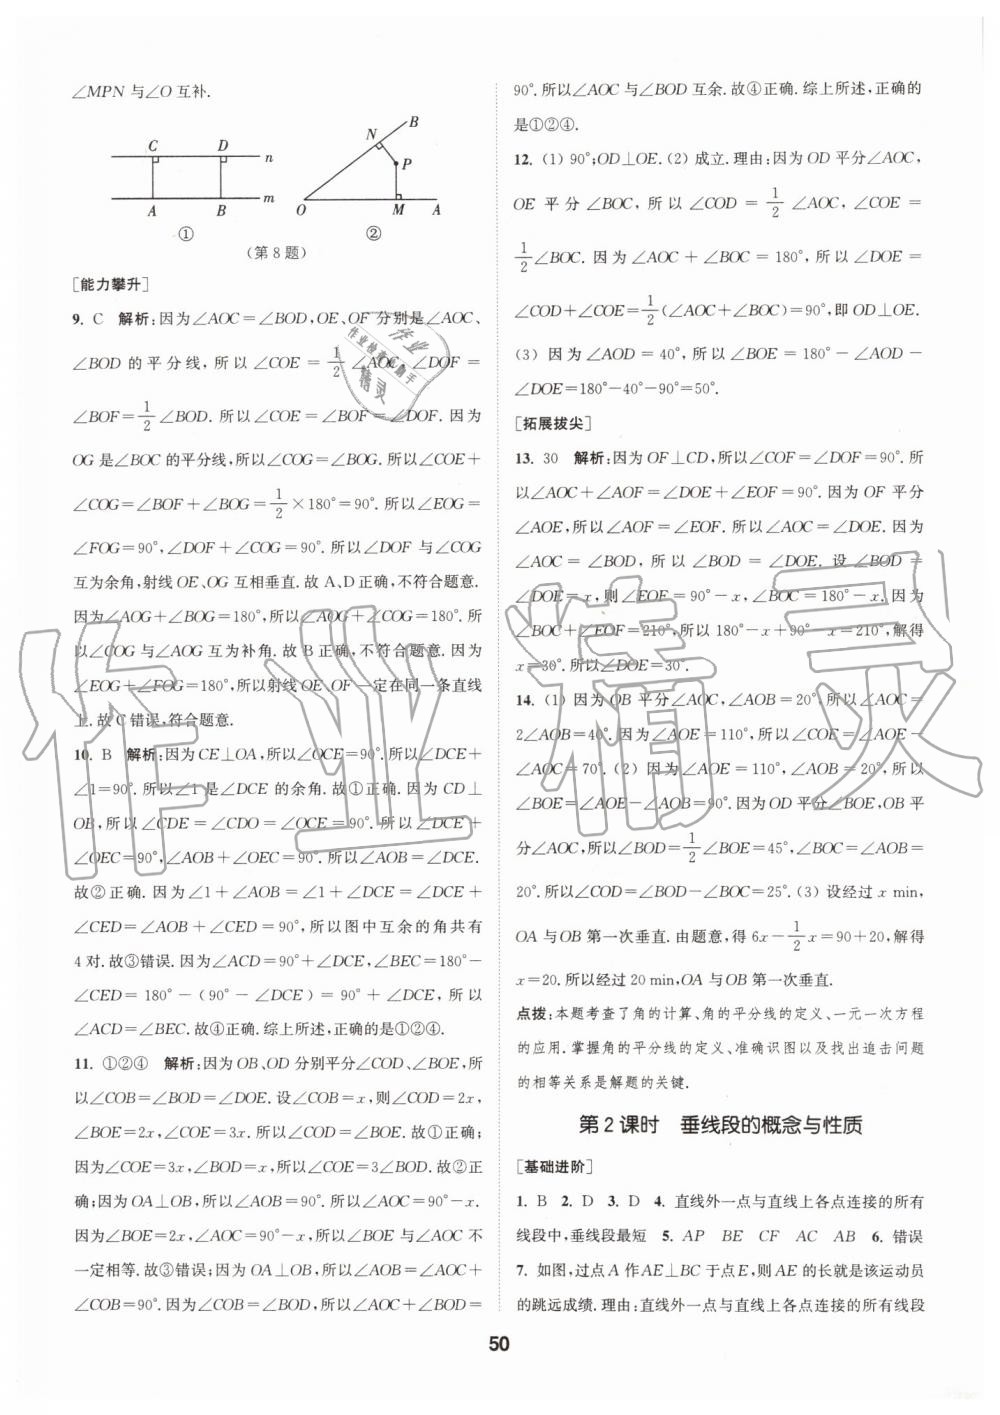 ∠MPN 与∠O 互补.
C D n
A B m
①
N B
P
O M A
②
(第 8 题)
[能力攀升]
9. C 解析:因为∠AOC=∠BOD,OE、OF 分别是∠AOC、
∠BOD 的平分线,所以∠COE=1/2∠AOC,∠DOF=
∠BOF=1/2∠BOD.所以∠COE=∠BOF=∠DOF.因为
OG 是∠BOC 的平分线,所以∠COG=∠BOG.所以∠COE+
∠COG=∠BOF+∠BOG=1/2×180°=90°.所以∠EOG=
∠FOG=90°,∠DOF+∠COG=90°.所以∠DOF 与∠COG
互为余角,射线 OE、OG 互相垂直.故 A、D 正确,不符合题意.
因为∠AOG+∠BOG=180°,所以∠AOG+∠COG=180°.所
以∠COG 与∠AOG 互为补角.故 B 正确,不符合题意.因为
∠EOG+∠FOG=180°,所以射线 OE、OF 一定在同一条直线
上.故 C 错误,符合题意.
10. B 解析:因为 CE⊥OA,所以∠OCE=90°.所以∠DCE+
∠1=90°.所以∠1 是∠DCE 的余角.故①正确.因为 CD⊥
OB,所以∠CDE=∠CDO=∠OCE=90°.所以∠DCE+
∠OEC=90°,∠AOB+∠OEC=90°.所以∠AOB=∠DCE.
故②正确.因为∠1+∠AOB=∠1+∠DCE=∠DCE+
∠CED=∠AOB+∠CED=90°,所以图中互余的角共有
4 对.故③错误.因为∠ACD=90°+∠DCE,∠BEC=180°-
∠CED=180°-(90°-∠DCE)=90°+∠DCE,所以
∠ACD=∠BEC.故④正确.综上所述,正确的是①②④.
11. ①②④ 解析:因为 OB、OD 分别平分∠COD、∠BOE,所
以∠COB=∠BOD=∠DOE.设∠COB=x,则∠COD=2x,
∠BOE=2x,∠COE=3x.所以∠COD=∠BOE.故①正确;
因为∠COE=3x,∠BOD=x,所以∠COE=3∠BOD.故②正
确;因为 OA⊥OB,所以∠AOB=90°.所以∠AOC=90°-x.
因为∠BOE=2x,∠AOC=90°-x,所以∠BOE 与∠AOC 不
一定相等.故③错误;因为 OA⊥OB,所以∠AOB=∠AOC+
∠COB=90°.因为∠COB=∠BOD,所以∠AOC+∠BOD=
90°.所以∠AOC 与∠BOD 互余.故④正确.综上所述,正确的
是①②④.
12. (1) 90°;OD⊥OE.(2) 成立.理由:因为 OD 平分∠AOC,
OE 平分∠BOC,所以∠COD=1/2∠AOC,∠COE=
1/2∠BOC.因为∠AOC+∠BOC=180°,所以∠DOE=
∠COD+∠COE=1/2(∠AOC+∠BOC)=90°,即 OD⊥OE.
(3) 因为∠AOD=40°,所以∠BOE=180°-∠AOD-
∠DOE=180°-40°-90°=50°.
[拓展拔尖]
13. 30 解析:因为 OF⊥CD,所以∠COF=∠DOF=90°.所
以∠AOC+∠AOF=∠DOE+∠EOF=90°.因为 OF 平分
∠AOE,所以∠AOF=∠EOF.所以∠AOC=∠DOE.因为
∠AOC=∠BOD,所以∠BOD=∠DOE.设∠BOD=
∠DOE=x,则∠EOF=90°-x,∠BOC=180°-x.因为
∠BOC+∠EOF=210°,所以 180°-x+90°-x=210°,解得
x=30°.所以∠DOE=30°.
14. (1) 因为 OB 平分∠AOC,∠AOB=20°,所以∠AOC=
2∠AOB=40°.因为∠AOE=110°,所以∠COE=∠AOE-
∠AOC=70°.(2) 因为∠AOE=110°,∠AOB=20°,所以
∠BOE=∠AOE-∠AOB=90°.因为 OD 平分∠BOE,OB 平
分∠AOC,所以∠BOD=1/2∠BOE=45°,∠BOC=∠AOB=
20°.所以∠COD=∠BOD-∠BOC=25°.(3) 设经过 x min,
OA 与 OB 第一次垂直.由题意,得 6x-1/2x=90+20,解得
x=20.所以经过 20 min,OA 与 OB 第一次垂直.
点拨:本题考查了角的计算、角的平分线的定义、一元一次方程
的应用.掌握角的平分线的定义、准确识图以及找出追击问题
的相等关系是解题的关键.
第 2 课时 垂线段的概念与性质
[基础进阶]
1. B 2. D 3. D 4. 直线外一点与直线上各点连接的所有
线段中,垂线段最短 5. AP BE CF AC AB 6. 错误
7. 如图,过点 A 作 AE⊥BC 于点 E,则 AE 的长就是该运动员
的跳远成绩.理由:直线外一点与直线上各点连接的所有线段
50
作业精灵